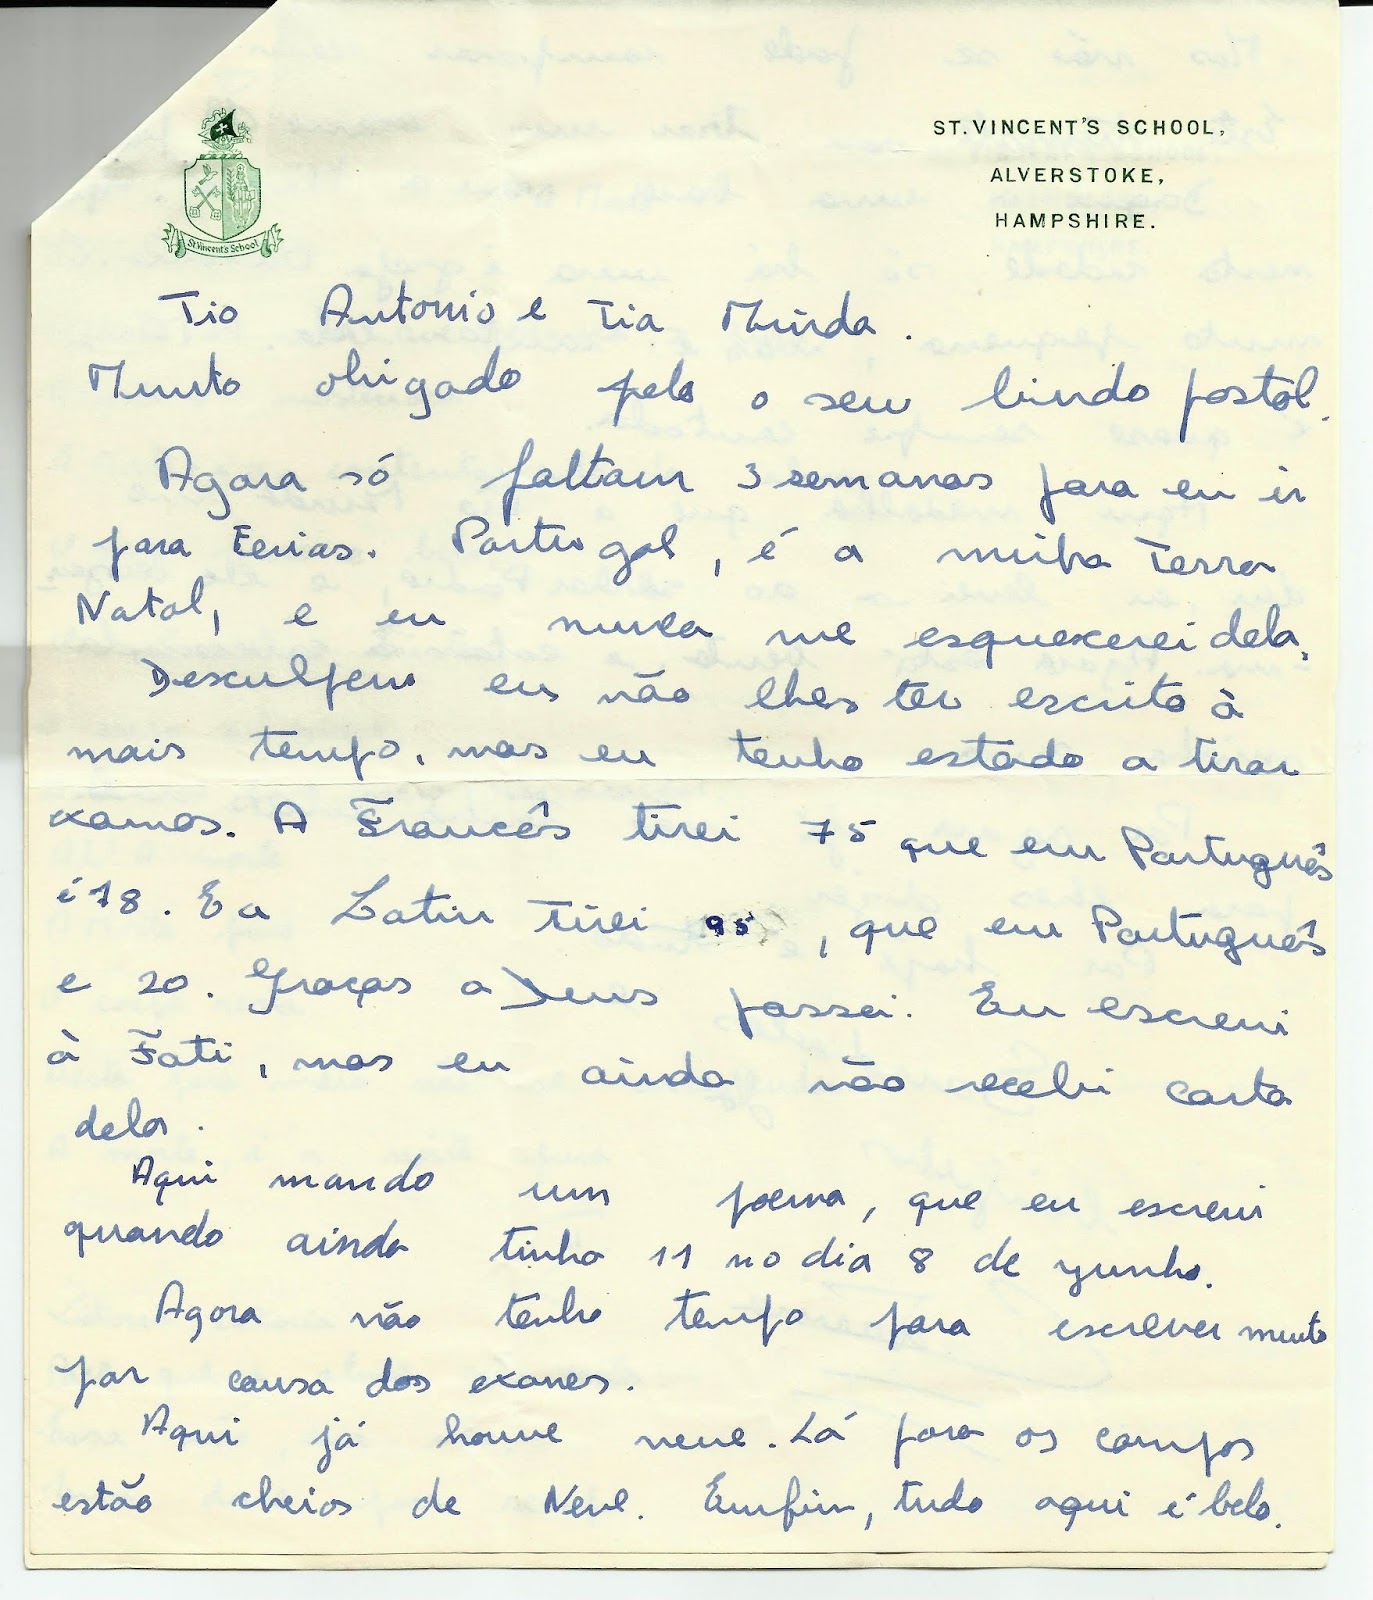 ST. VINCENT'S SCHOOL,
ALVERSTOKE,
HAMPSHIRE.
St. Vincent's School
Tio Antonio e Tia Milú
Muito obrigado pelo o seu lindo postal.
Agora só faltam 3 semanas para eu ir
para Ferias. Portugal, é a minha Terra
Natal, e eu nunca me esquecerei dela.
Desculpem eu não lhes ter escrito à
mais tempo, mas eu tenho estado a tirar
exames. A Francês tirei 75 que em Português
é 18. E a Latin tirei 95, que em Português
e 20. Graças a Deus passei. Eu escrevi
à Fati, mas eu ainda não recebi carta
dela.
Aqui mando um poema, que eu escrevi
quando ainda tinha 11 no dia 8 de yunho.
Agora não tenho tempo para escrever muito
por causa dos exames.
Aqui já houve neve. Lá fora os campos
estão cheios de Neve. Emfim, tudo aqui é belo.